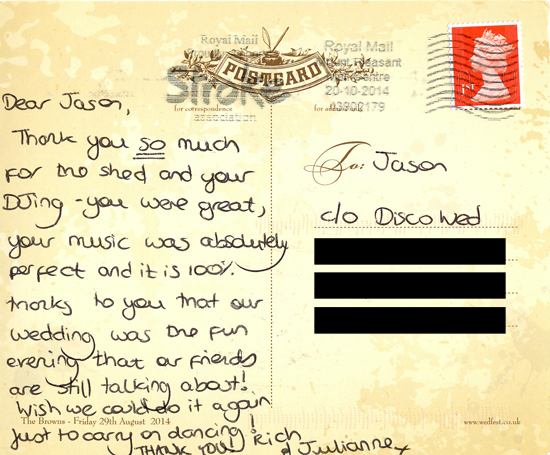 Royal Mail
Royal Mail
Mount Pleasant
Mail Centre
20-10-2014
03900179
Stroke
association
POSTCARD
for correspondence
for address only
1ST
Dear Jason,
Thank you so much
for the shed and your
DJing - you were great,
your music was absolutely
perfect and it is 100%
thanks to you that our
wedding was the fun
evening that our friends
are still talking about!
Wish we could do it again
just to carry on dancing!
THANK YOU!
Rich
& Julianne x
To: Jason
c/o Disco Wed
The Browns - Friday 29th August 2014
www.wedfest.co.uk